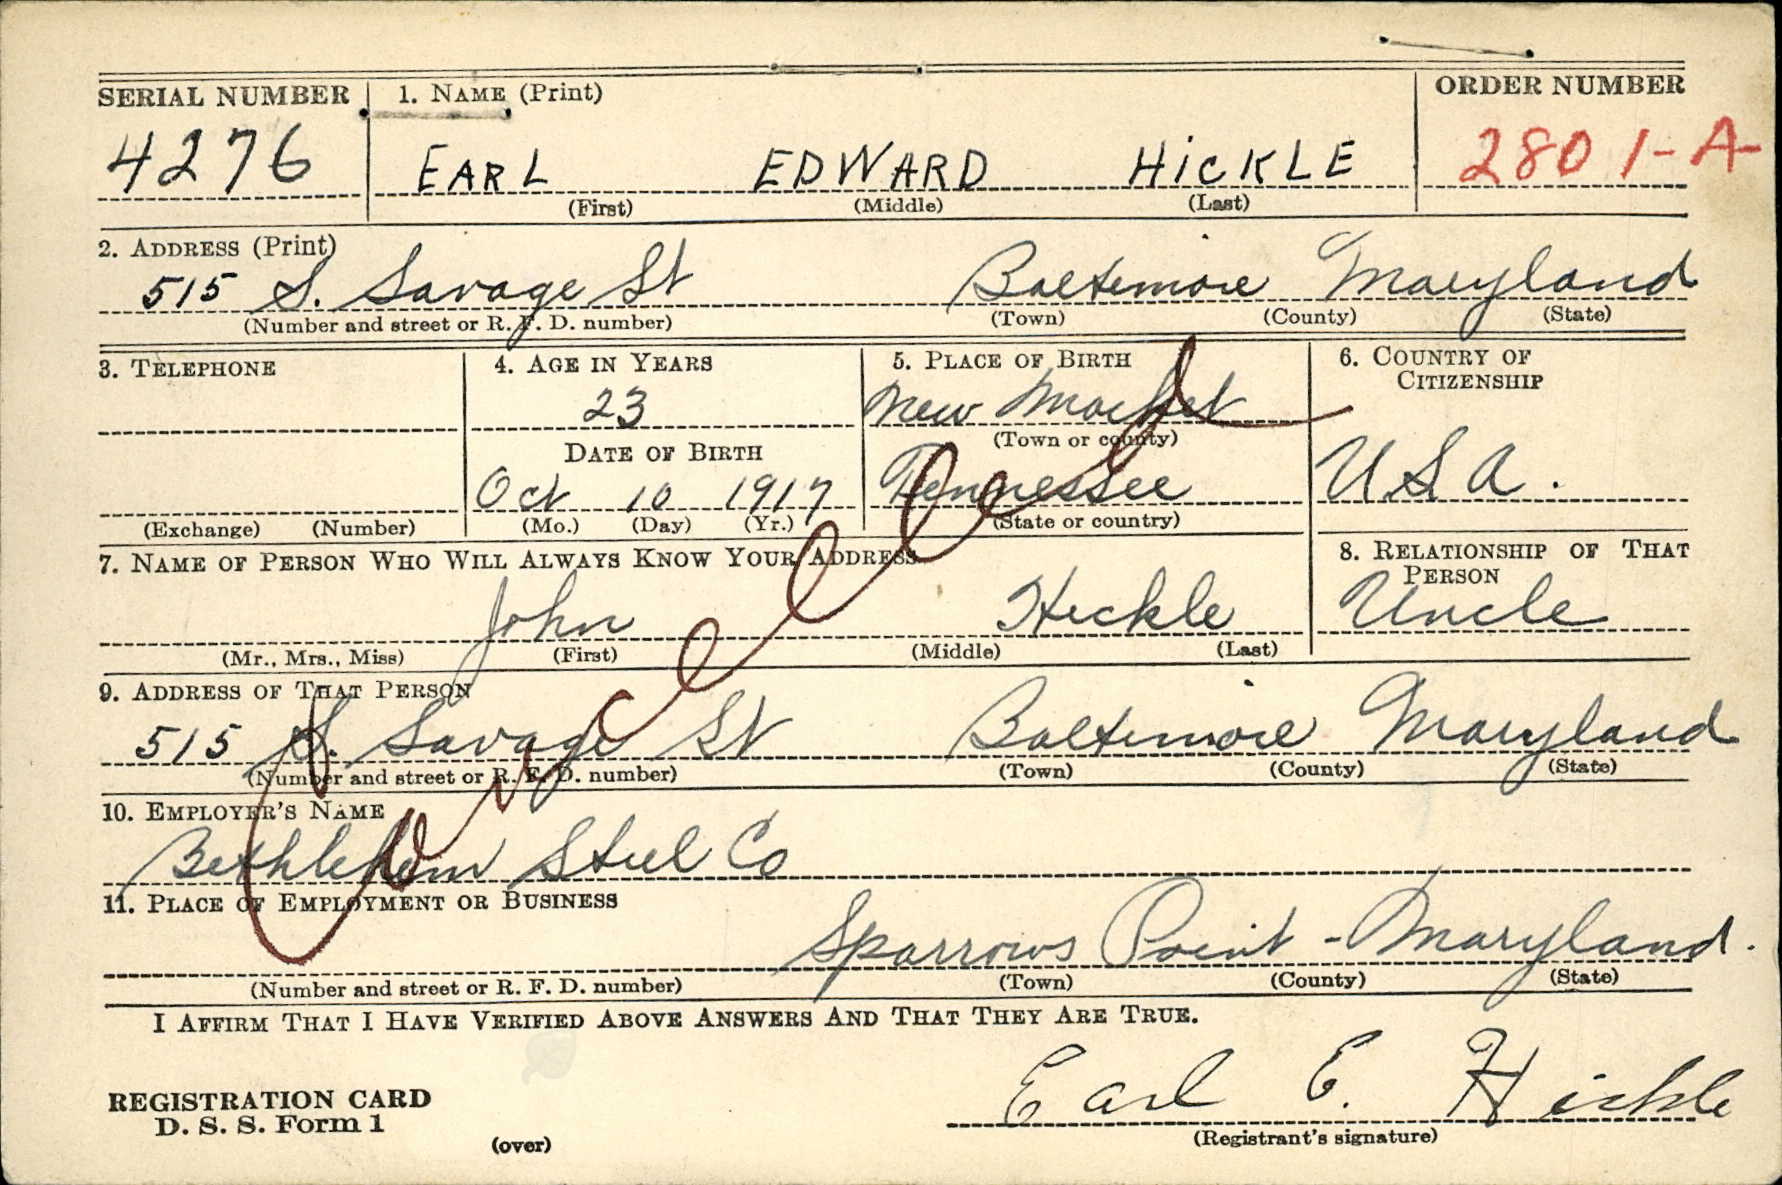 SERIAL NUMBER 1. NAME (Print) ORDER NUMBER
4276 EARL EDWARD HICKLE 2801-A
(First) (Middle) (Last)
2. ADDRESS (Print)
515 S. Savage St Baltimore Maryland
(Number and street or R. F. D. number) (Town) (County) (State)
3. TELEPHONE 4. AGE IN YEARS 5. PLACE OF BIRTH 6. COUNTRY OF CITIZENSHIP
23 New Market
(Town or county)
DATE OF BIRTH
Oct 10 1917 Tennessee USA.
(Exchange) (Number) (Mo.) (Day) (Yr.) (State or country)
7. NAME OF PERSON WHO WILL ALWAYS KNOW YOUR ADDRESS 8. RELATIONSHIP OF THAT PERSON
John Hickle Uncle
(Mr., Mrs., Miss) (First) (Middle) (Last)
9. ADDRESS OF THAT PERSON
515 S. Savage St Baltimore Maryland
(Number and street or R. F. D. number) (Town) (County) (State)
10. EMPLOYER'S NAME
Bethlehem Steel Co
11. PLACE OF EMPLOYMENT OR BUSINESS
Sparrows Point - Maryland.
(Number and street or R. F. D. number) (Town) (County) (State)
I AFFIRM THAT I HAVE VERIFIED ABOVE ANSWERS AND THAT THEY ARE TRUE.
Earl E. Hickle
REGISTRATION CARD
D. S. S. Form 1
(over) (Registrant's signature)
Cancelled